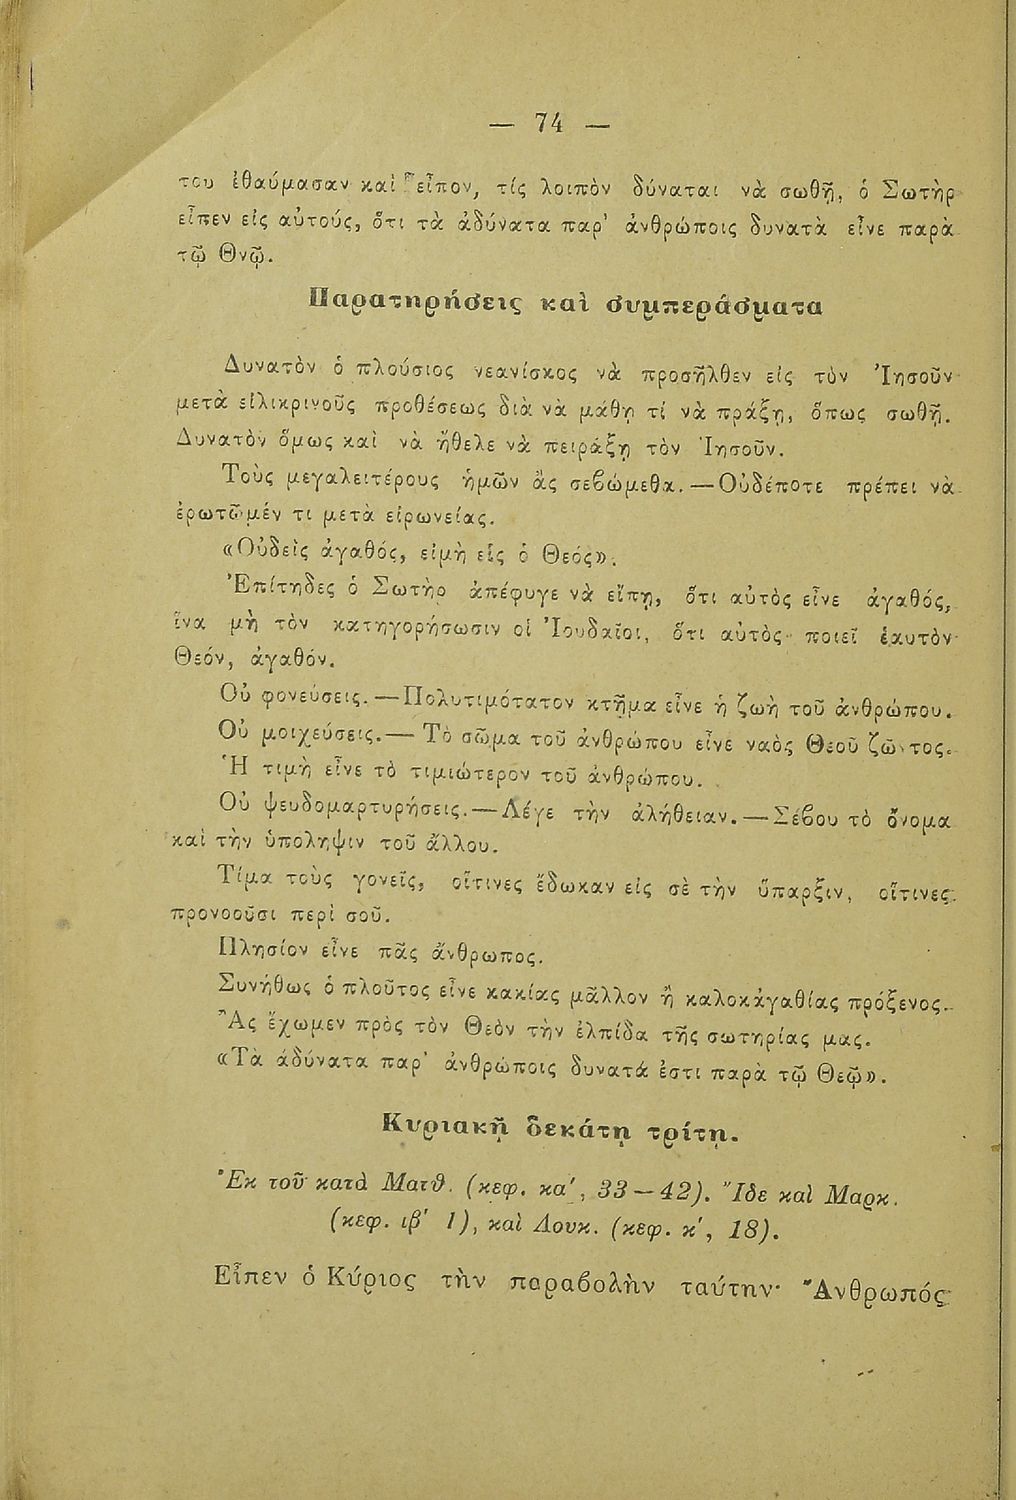 — 74 —
του ἐθαύμασαν καὶ εἶπον, τίς λοιπὸν δύναται νὰ σωθῇ, ὁ Σωτὴρ
εἶπεν εἰς αὐτούς, ὅτι τὰ ἀδύνατα παρ' ἀνθρώποις δυνατὰ εἶνε παρὰ
τῷ Θνῷ.
Παρατηρήσεις καὶ συμπεράσματα
Δυνατὸν ὁ πλούσιος νεανίσκος νὰ προσῆλθεν εἰς τὸν Ἰησοῦν
μετὰ εἰλικρινοῦς προθέσεως διὰ νὰ μάθῃ τί νὰ πράξῃ, ὅπως σωθῇ.
Δυνατὸν ὅμως καὶ νὰ ἤθελε νὰ πειράξῃ τὸν Ἰησοῦν.
Τοὺς μεγαλειτέρους ἡμῶν ἂς σεβώμεθα. — Οὐδέποτε πρέπει νὰ
ἐρωτῶμέν τι μετὰ εἰρωνείας.
«Οὐδεὶς ἀγαθός, εἰμὴ εἷς ὁ Θεός».
Ἐπίτηδες ὁ Σωτὴρ ἀπέφυγε νὰ εἴπῃ, ὅτι αὐτὸς εἶνε ἀγαθός,
ἵνα μὴ τὸν κατηγορήσωσιν οἱ Ἰουδαῖοι, ὅτι αὐτὸς ποιεῖ ἑαυτὸν
Θεόν, ἀγαθόν.
Οὐ φονεύσεις. — Πολυτιμότατον κτῆμα εἶνε ἡ ζωὴ τοῦ ἀνθρώπου.
Οὐ μοιχεύσεις. — Τὸ σῶμα τοῦ ἀνθρώπου εἶνε ναὸς Θεοῦ ζῶντος.
Ἡ τιμὴ εἶνε τὸ τιμιώτερον τοῦ ἀνθρώπου.
Οὐ ψευδομαρτυρήσεις. — Λέγε τὴν ἀλήθειαν. — Σέβου τὸ ὄνομα
καὶ τὴν ὑπόληψιν τοῦ ἄλλου.
Τίμα τοὺς γονεῖς, οἵτινες ἔδωκαν εἰς σὲ τὴν ὕπαρξιν, οἵτινες
προνοοῦσι περὶ σοῦ.
Πλησίον εἶνε πᾶς ἄνθρωπος.
Συνήθως ὁ πλοῦτος εἶνε κακίας μᾶλλον ἢ καλοκἀγαθίας πρόξενος.
Ἂς ἔχωμεν πρὸς τὸν Θεὸν τὴν ἐλπίδα τῆς σωτηρίας μας.
«Τὰ ἀδύνατα παρ' ἀνθρώποις δυνατά ἐστι παρὰ τῷ Θεῷ».
Κυριακῇ δεκάτῃ τρίτῃ.
Ἐκ τοῦ κατὰ Ματθ. (κεφ. κα', 33 — 42). Ἴδε καὶ Μαρκ.
(κεφ. ιβ' 1), καὶ Λουκ. (κεφ. κ', 18).
Εἶπεν ὁ Κύριος τὴν παραβολὴν ταύτην· Ἄνθρωπός